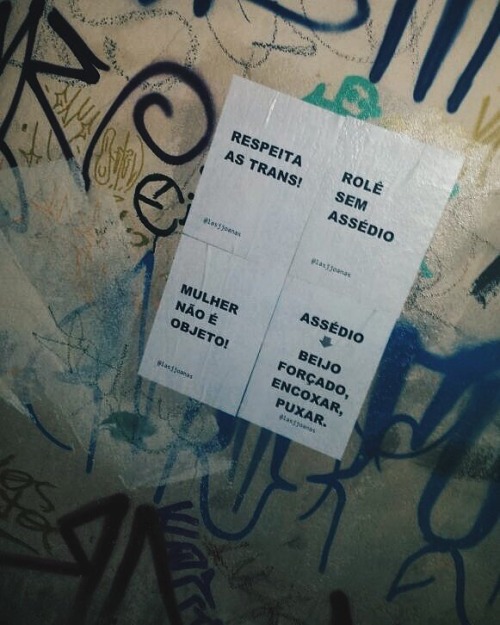 RESPEITA
AS TRANS!
@lasjjoanas
ROLÊ
SEM
ASSÉDIO
@lasjjoanas
MULHER
NÃO É
OBJETO!
@lasjjoanas
ASSÉDIO
BEIJO
FORÇADO,
ENCOXAR,
PUXAR.
@lasjjoanas